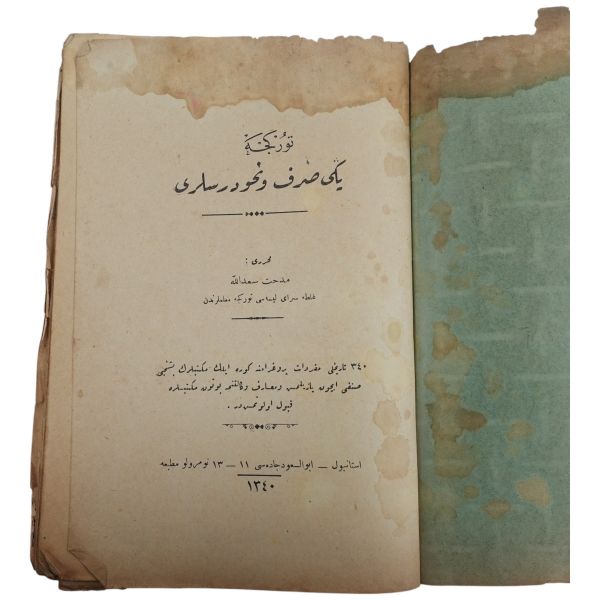 توركجه
یكی صرف و نحو درسلری
محرری :
مدحت سعدالله
غلطه سرای لیسه‌سی توركجه معلملرندن
٣٤٠ تاریخلی مفردات پروغرامنه كوره ایلك مكتبلرك بشنجی
صنفی ایچون یازیلمش و معارف وكالتنجه بوتون مكتبلرده
قبول اولونمشدر .
استانبول — ابوالسعود جاده‌سی ١١ — ١٣ نومرولو مطبعه
١٣٤٠